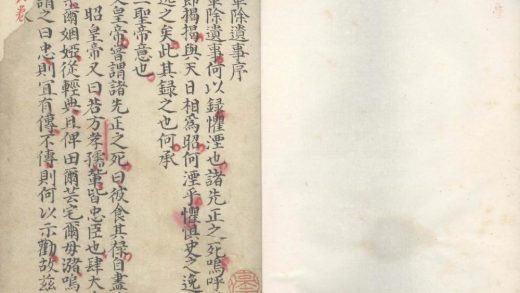 革除遺事序
革除遺事何以錄懼湮也諸先正之死嗚呼
節揭揭與天日相為昭何湮乎懼懼史之逸
逸之矣此其錄之也何承
二聖帝意也
文皇帝嘗謂諸先正之死曰彼食其祿自盡
昭皇帝又曰若方孝孺輩皆忠臣也肆大
宗爾姻婭從輕典且俾田爾芸宅爾毋瀦嗚
謂之曰忠則宜有傳不傳則何以示勸故茲